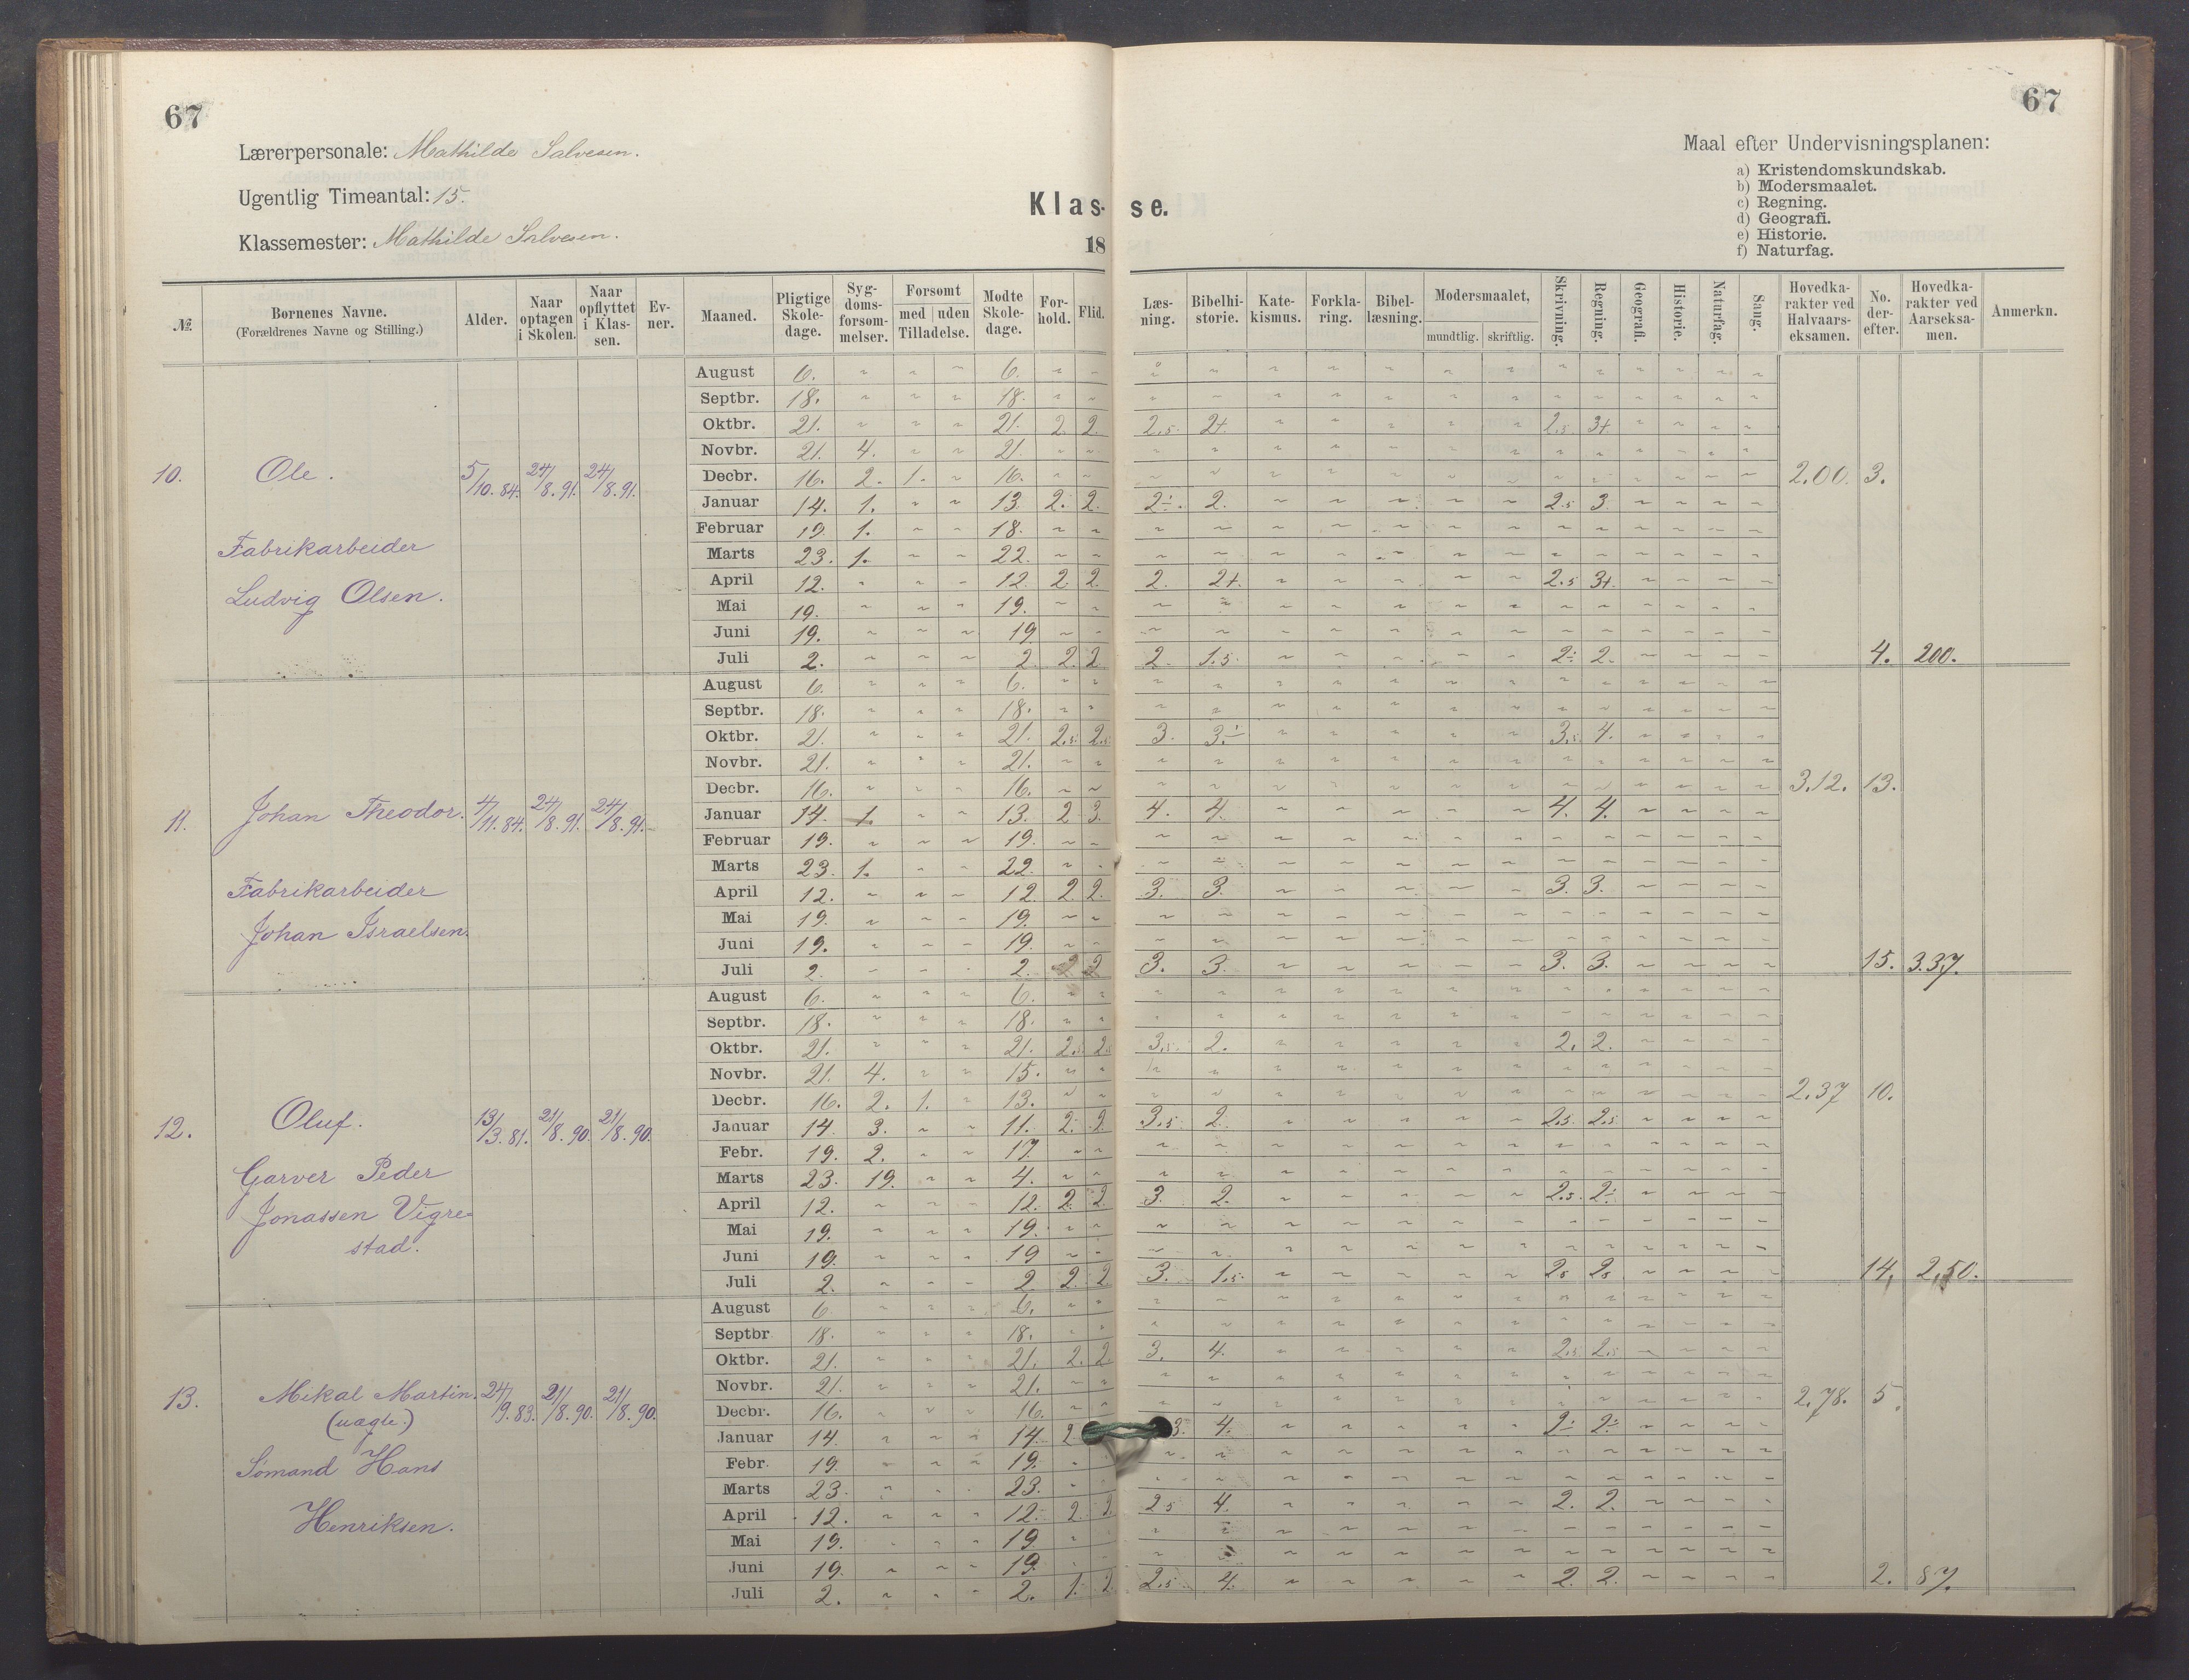 67
67
Lærerpersonale: Mathilde Salvesen.
Ugentlig Timeantal: 15.
Klassemester: Mathilde Salvesen.
Klas- se.
18
Maal efter Undervisningsplanen:
a) Kristendomskundskab.
b) Modersmaalet.
c) Regning.
d) Geografi.
e) Historie.
f) Naturfag.
№ Børnenes Navne. (Forældrenes Navne og Stilling.) Alder. Naar optagen i Skolen. Naar opflyttet i Klassen. Evner. Maaned. Pligtige Skoledage. Sygdomsforsømmelser. Forsømt med uden Tilladelse. Mødte Skoledage. Forhold. Flid. Læsning. Bibelhistorie. Katekismus. Forklaring. Bibellæsning. Modersmaalet, mundtlig. skriftlig. Skrivning. Regning. Geografi. Historie. Naturfag. Sang. Hovedkarakter ved Halvaarseksamen. No. derefter. Hovedkarakter ved Aarseksamen. Anmerkn.
10. Ole. 5/10. 84. 24/8. 91. 24/8. 91.
Fabrikarbeider
Ludvig Olsen.
August 6. 6.
Septbr. 18. 18.
Oktbr. 21. 21. 2. 2. 2.5. 2+. 2.5. 3+
Novbr. 21. 4. 21.
Decbr. 16. 2. 1. 16. 2.00. 3.
Januar 14. 1. 13. 2. 2. 2÷. 2. 2.5 3.
Februar 19. 1. 18.
Marts 23. 1. 22.
April 12. 12. 2. 2. 2. 2+. 2.5 3+.
Mai 19. 19.
Juni 19. 19
Juli 2. 2. 2. 2 2. 1.5. 2÷ 2. 4. 200.
11. Johan Theodor. 4/11. 84. 24/8. 91. 24/8. 91.
Fabrikarbeider
Johan Israelsen.
August 6. 6.
Septbr. 18. 18.
Oktbr. 21. 21. 2.5. 2.5 3. 3.÷ 3.5 4.
Novbr. 21. 21.
Decbr. 16. 16. 3.12. 13.
Januar 14. 1. 13. 2 3. 4. 4. 4. 4.
Februar 19. 19.
Marts 23. 1. 22.
April 12. 12. 2. 2. 3. 3. 3. 3.
Mai 19. 19.
Juni 19. 19.
Juli 2. 2. 2 2 3. 3. 3. 3. 15. 3.37.
12. Oluf. 13/3. 81. 21/8. 90. 21/8. 90.
Garver Peder
Jonassen Vigre-
stad.
August 6. 6.
Septbr. 18. 18.
Oktbr. 21. 21. 2.5 2.5 3.5. 2. 2. 2.
Novbr. 21. 4. 15.
Decbr. 16. 2. 1. 13. 2.37 10.
Januar 14. 3. 11. 2. 2. 3.5 2. 2.5. 2.5
Febr. 19. 2. 17.
Marts 23. 19. 4.
April 12. 12. 2. 2 3. 2. 2.5. 2÷
Mai 19. 19.
Juni 19. 19
Juli 2. 2 2. 2 3. 1.5. 25 25 14, 2,50.
13. Mikal Martin. 24/9. 83. 21/8. 90. 21/8. 90.
(uægte.)
Sømand Hans
Henriksen.
August 6. 6.
Septbr 18. 18.
Oktbr. 21. 21. 2. 2. 3. 4. 2.5 2.5
Novbr. 21. 21.
Decbr. 16. 16. 2.78. 5.
Januar 14. 14. 2 3. 4. 2÷ 2÷
Febr. 19. 19.
Marts 23. 23.
April 12. 12. 2. 2. 2.5 4. 2. 2.
Mai 19. 19
Juni 19. 19.
Juli 2. 2. 1. 2. 2.5 4. 2. 2. 2. 87.